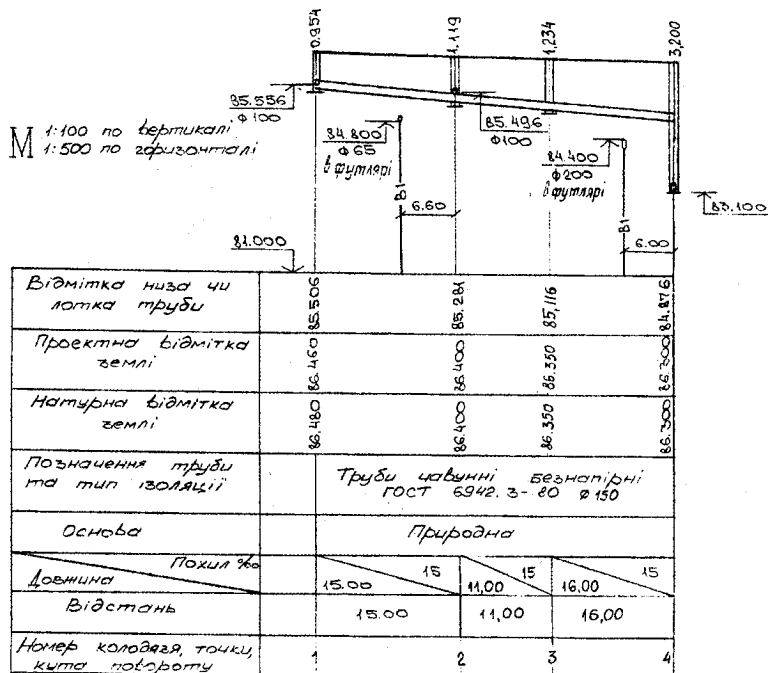 0.954
1.119
1,234
3,200
85.556
Ф100
М 1:100 по вертикалі
1:500 по горизонталі
84.800
Ф65
в футлярі
85.496
Ф100
84.400
Ф200
в футлярі
83.100
В1
6.60
В1
6.00
81.000
Відмітка низа чи лотка труби
85.506
85.281
85,116
84.876
Проектна відмітка землі
86.460
86.400
86.350
86.300
Натурна відмітка землі
86.480
86.400
86.350
86.300
Позначення труби та тип ізоляції
Труби чавунні безнапірні
ГОСТ 6942.3-80 ø150
Основа
Природна
Похил ‰
Довжина
15.00
15
11,00
15
16,00
15
Відстань
15.00
11,00
16,00
Номер колодязя, точки, кута повороту
1
2
3
4